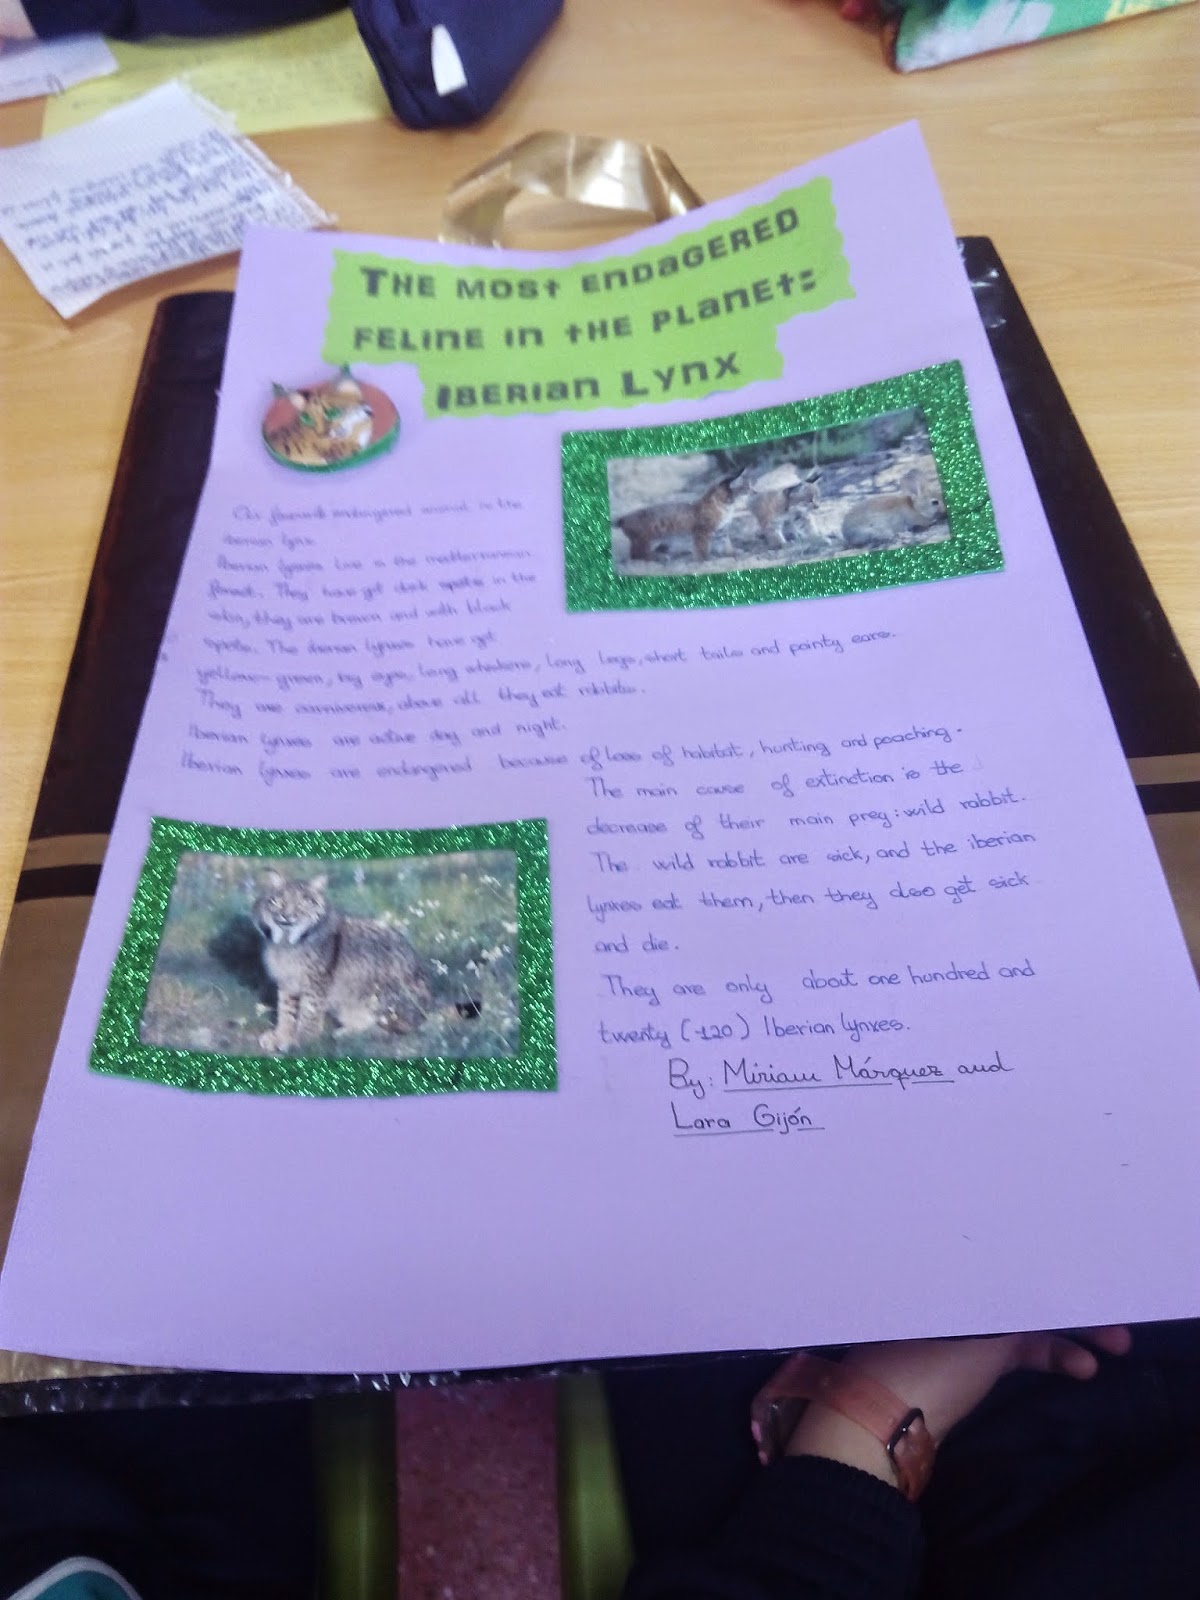 THE MOST ENDAGERED
FELINE IN THE PLANET:
IBERIAN LYNX
Our favourite endangered animal is the
Iberian lynx.
Iberian lynxes live in the mediterranean
forest. They have got dark spots in the
skin, they are brown and with black
spots. The iberian lynxes have got
yellow-green, big eyes, long whiskers, long legs, short tails and pointy ears.
They are carnivorous, above all they eat rabbits.
Iberian lynxes are active day and night.
Iberian lynxes are endangered because of loss of habitat, hunting and poaching.
The main cause of extinction is the
decrease of their main prey: wild rabbit.
The wild rabbit are sick, and the iberian
lynxes eat them, then they also get sick
and die.
They are only about one hundred and
twenty (120) Iberian lynxes.
By: Miriam Márquez and
Lara Gijón